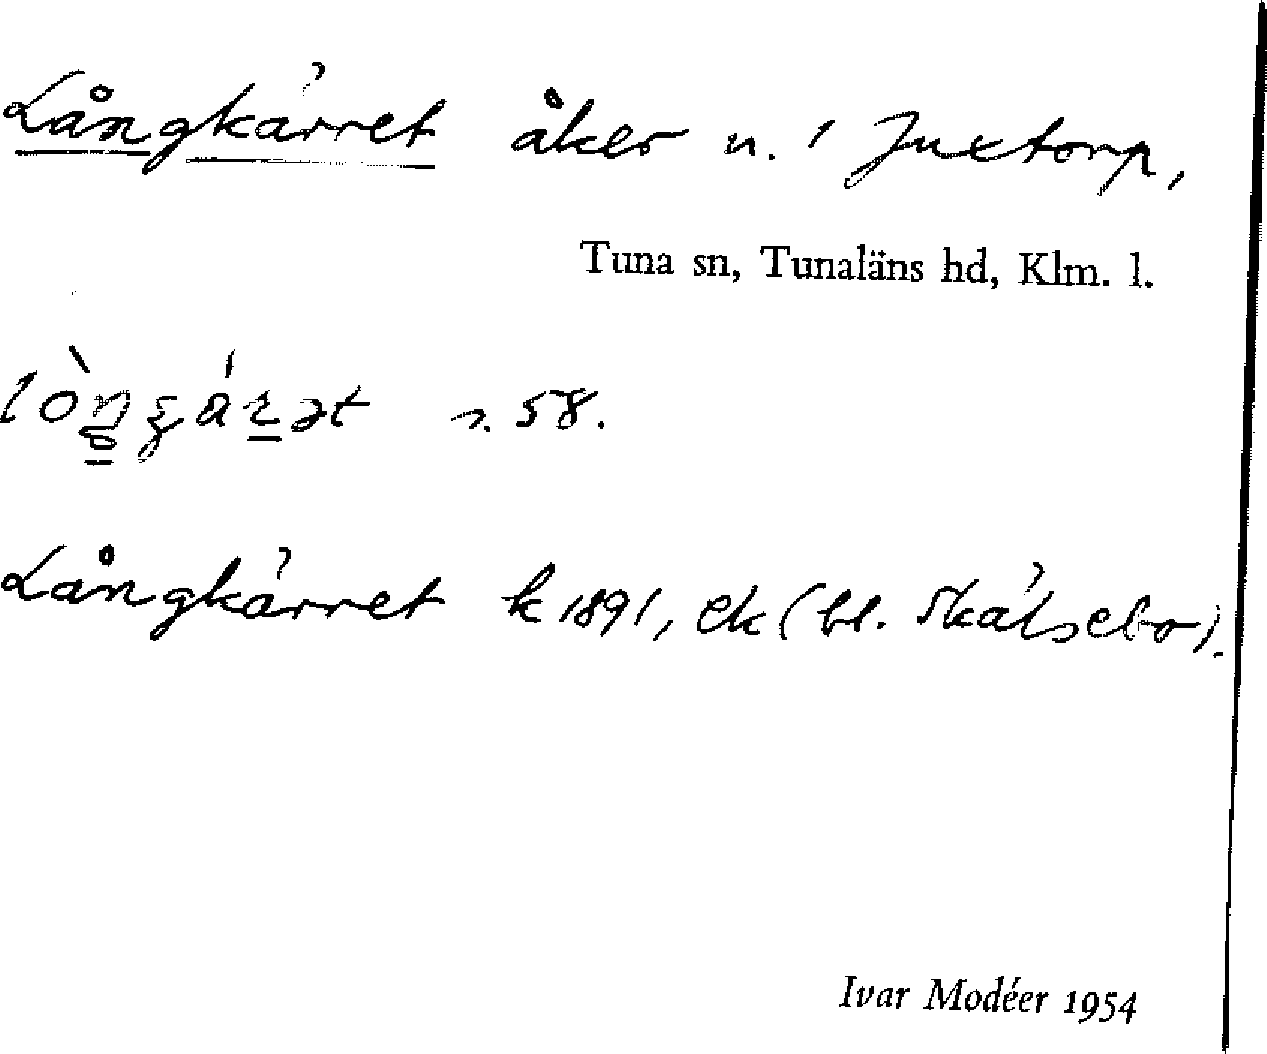 Långkärret åker n. i Juxtorp,
Tuna sn, Tunaläns hd, Klm. l.
s. 58.
Långkärret k 1891, ek (bl. Skälsebo).
Ivar Modéer 1954